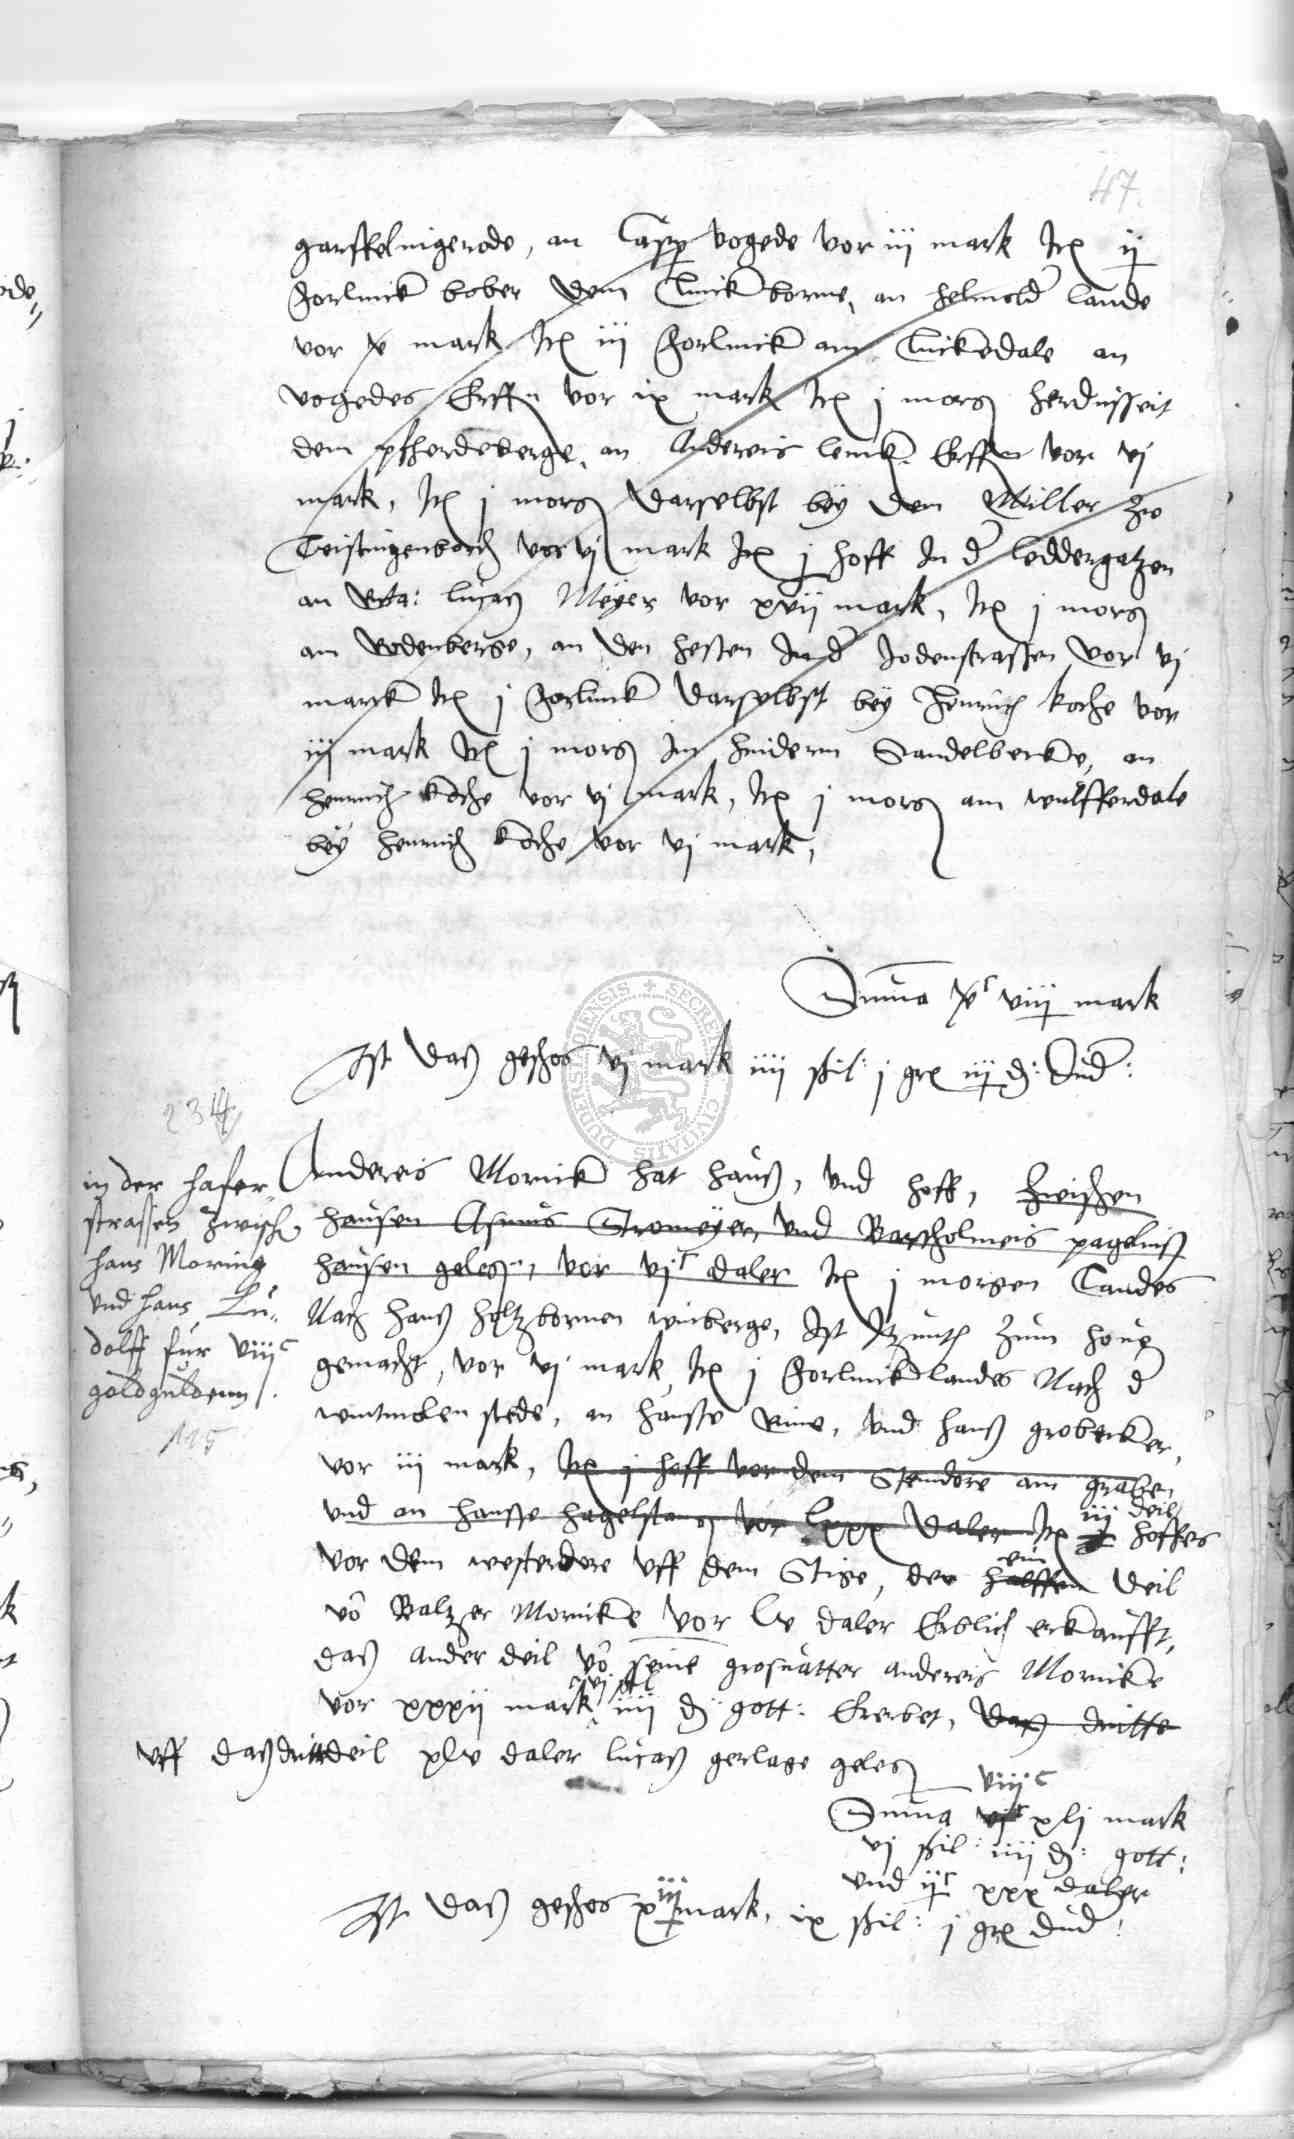 47.
garstelingerode, an Casper vogede vor iij mark Ite ij
forlinck bober dem Clinckborne, an helmold lande
vor x mark Ite iij forlinck am Luckedale an
vogedes Erffn vor ix mark Ite j morg herdisseit
dem pfherdeberge, an Andereis lenck Erffen vor vj
mark, Ite j morg darselbst bey dem Müller zo
Teistingenborch vor vj mark Ite j hoff In d leddergatzen
an lucas Meyer vor xvij mark, Ite j morg
am Rodenberge, an den hesten In d Jodenstrassen vor vj
marck Ite j forlinck darselbst bey Henrich koche vor
iij mark Ite j morg Im hindern Sandelbecke, an
henrich koche vor vj mark, Ite j morg am wulfferdale
bey henrich koche vor vj mark,
Suma viij mark
Ist das geschos vj mark iiij schil: j gr iij d: Dud:
234
in der hafer-
strassen zwisch
hans Moring
und hans Lu-
dolff fur viij c
goldgulden.
115
Andereis Mornick hat haus, und hoff, zwischen
hausen Asmus Stromeyer, und Bartholmeis pagels
hausen geleg, vor vj c daler Ite j morgen Landes
Nach hans holtzbornen winberge, Ist Itzunt zum
gemacht, vor vj mark, Ite j forlinck landes Nach d
wintmolen stede, an hanse Rine, und hans grobecker,
vor iij mark, Ite j hoff vor dem Steindore am graben
und an hanse hagelstang vor lxxx daler Ite iij deil hoffes
vor dem westerdore uff dem Stige, der ein halffen deil
vo Baltzer Mornicke vor lv daler Erblich erkaufft,
das ander deil vo seine grosvatter andereis Mornicke
vor xxxij mark vj schl iiij d gott: Ererbet, das dritte
uff das dritte deil xlv daler lucas gerlage geleg
viij c
Suma xlj mark
vj schil: iiij d: gott:
und ij c xxx daler
Ist das geschos mark, ix schil: j gr dud:
DUDERSTADIENSIS SECRET CIVITATIS